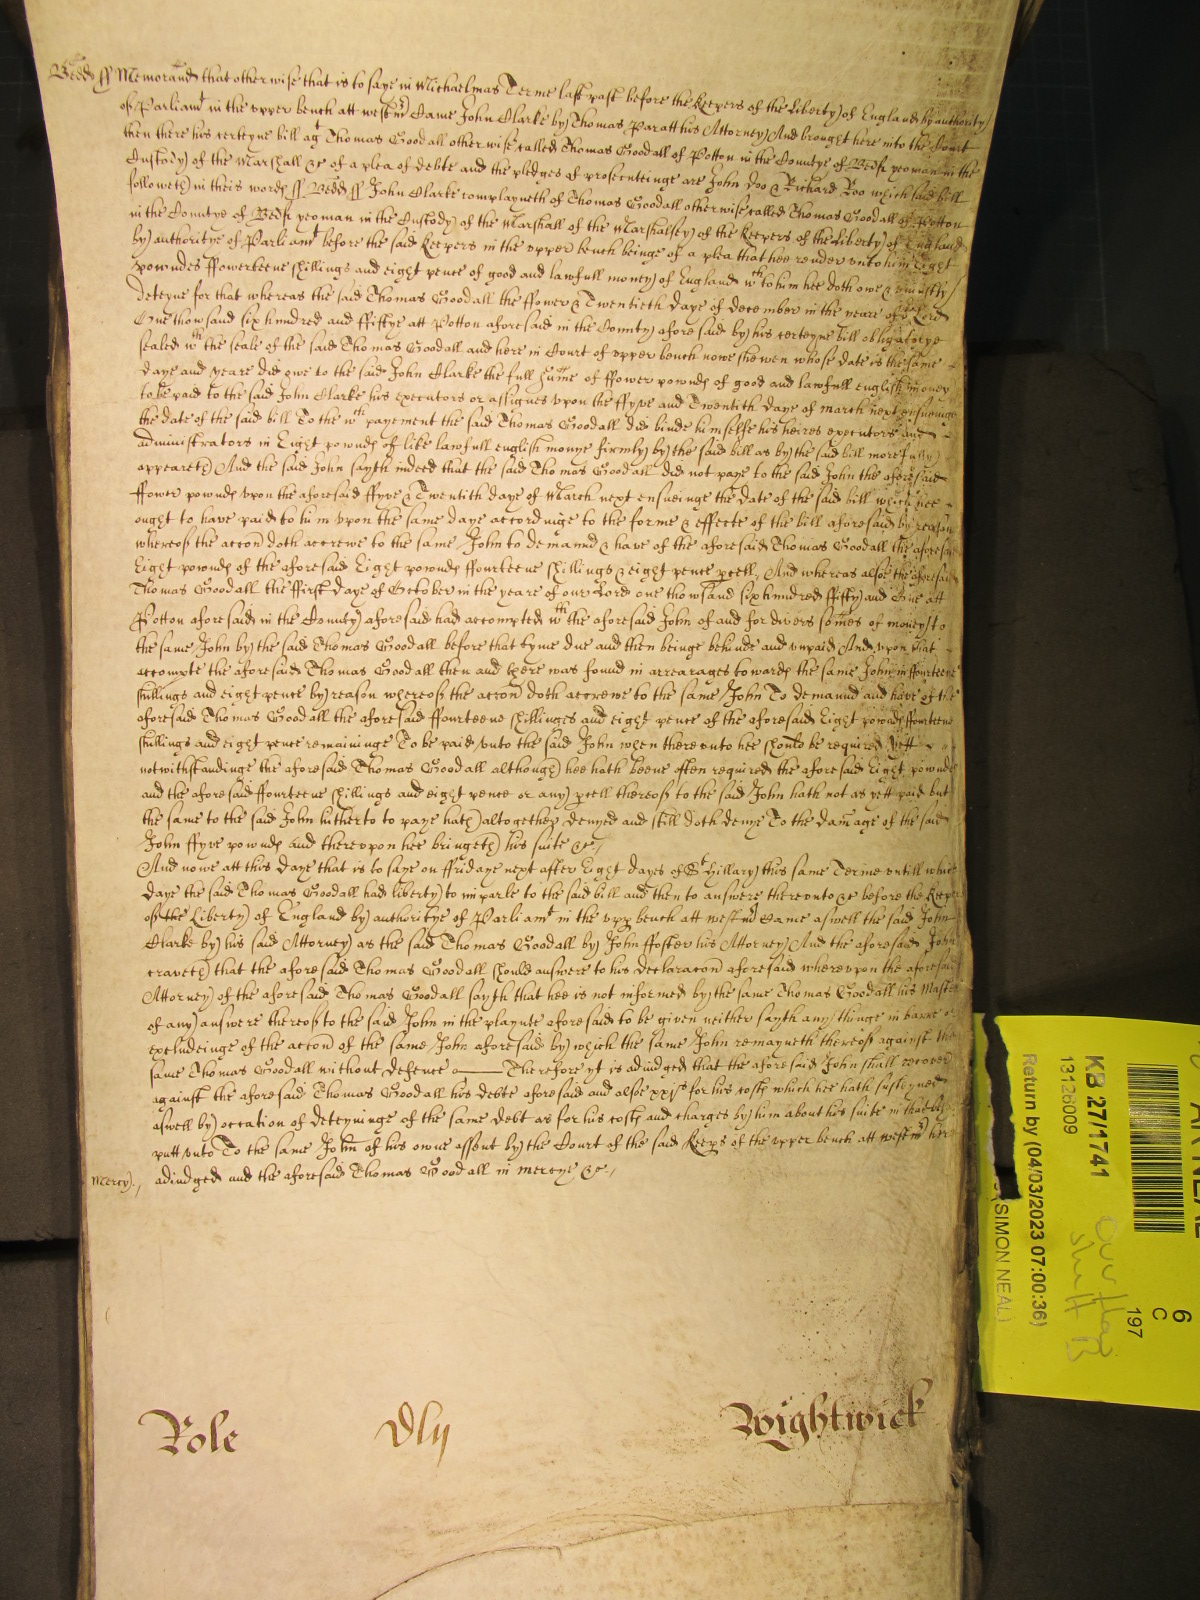 Bedd ss Memorand that otherwise that is to saye in Michaelmas Terme last past before the Keepers of the Liberty of England by authority
of Parliamt in the upper bench att westmr Came John Clarke by Thomas Paratt his Attorney And brought here into the Court
then there his certeyne bill agt Thomas Goodall otherwise called Thomas Goodall of Potton in the Countye of Bedf yeoman in the
Custody of the Marshall &c of a plea of debte and the pledges of prosecuteinge are John Doo & Richard Roo which said bill
followeth in theis words ss Bedd ss John Clarke complayneth of Thomas Goodall otherwise called Thomas Goodall of Potton
in the Countye of Bedf yeoman in the Custody of the Marshall of the Marshalsey of the Keepers of the Liberty of England
by authoritye of Parliamt before the said Keepers in the upper bench beinge of a plea that hee render unto him Eight
powndes ffowerteene shillings and eight pence of good and lawfull money of England wth to him hee doth owe & uniustly
deteyne for that whereas the said Thomas Goodall the ffower & Twentieth daye of december in the yeare of or Lord
One thowsand six hundred and ffiftye att Potton aforesaid in the County aforesaid by his certeyne bill obligatorye
sealed wth the seale of the said Thomas Goodall and here in Court of upper bench nowe shewen whose date is the same
daye and yeare did owe to the said John Clarke the full sume of ffower pownds of good and lawfull english money
to be paid to the said John Clarke his executors or assignes upon the ffyve and Twentith daye of march next ensueinge
the date of the said bill To the wth payement the said Thomas Goodall did binde himselfe his heires executors and
administrators in Eight pownds of like lawfull english monye firmly by the said bill as by the said bill more fully
appeareth And the said John sayth indeed that the said Thomas Goodall did not paye to the said John the aforesaid
ffower pownds upon the aforesaid ffyve & Twentith daye of March next ensueinge the date of the said bill which hee
ought to have paid to him upon the same daye accordinge to the forme & effecte of the bill aforesaid by reason
whereof the accon doth accrewe to the same John to demannd & have of the aforesaid Thomas Goodall the aforesaid
Eight pownds of the aforesaid Eight pownds ffourteene shillings & eight pence pcell, And whereas alsoe the aforesaid
Thomas Goodall the ffirst daye of October in the yeare of our Lord one thowsand six hundred ffifty and One att
Potton aforesaid in the County aforesaid had accompted wth the aforesaid John of and for divers somes of money to
the same John by the said Thomas Goodall before that tyme due and then beinge behinde and unpaid And upon that
accompte the aforesaid Thomas Goodall then and there was found in arrearages towards the same John in ffourteene
shillings and eight pence by reason whereof the accon doth accrewe to the same John To demannd and have of the
aforesaid Thomas Goodall the aforesaid ffourteene shillinges and eight pence of the aforesaid Eight pownds ffourteene
shillings and eight pence remaininge To be paid unto the said John when thereunto hee should be required yett
notwithstandinge the aforesaid Thomas Goodall although hee hath beene often required the aforesaid Eight pownds
and the aforesaid ffourteene shillings and eight pence or any pcell thereof to the said John hath not as yett paid but
the same to the said John hitherto to paye hath altogether denyed and still doth denye To the damage of the said
John ffyve pownds and thereupon hee bringeth his suite &c,
And nowe att this daye that is to saye on ffridaye next after Eight dayes of St Hillary this same Terme untill which
daye the said Thomas Goodall had liberty to imparle to the said bill and then to answere thereunto &c before the Keeps
of the Liberty of England by authoritye of Parliamt in the upp bench att westmr Came aswell the said John
Clarke by his said Attorney as the said Thomas Goodall by John ffoster his Attorney And the aforesaid John
craveth that the aforesaid Thomas Goodall should answere to his declaracon aforesaid whereupon the aforesaid
Attorney of the aforesaid Thomas Goodall sayth that hee is not informed by the same Thomas Goodall his Master
of any answere thereof to the said John in the playnte aforesaid to be given neither sayth any thinge in barre or
excludeinge of the accon of the same John aforesaid by which the same John remayneth thereof against the
same Thomas Goodall without defence Therefore yt is adiudged that the aforesaid John shall recover
against the aforesaid Thomas Goodall his debte aforesaid and alsoe xxjs for his costs which hee hath susteyned
aswell by occation of deteyninge of the same debt as for his costs and charges by him about his suite in that
putt unto To the same John of his owne assent by the Court of the said Keeps of the upper bench att westmr here
Mercy., adiudged and the aforesaid Thomas Goodall in mercye &c,
Role Dlij Wightwick
KB 27/1741
13126009
Return by (04/03/2023 07:00:36)
(SIMON NEAL)
6
C
197